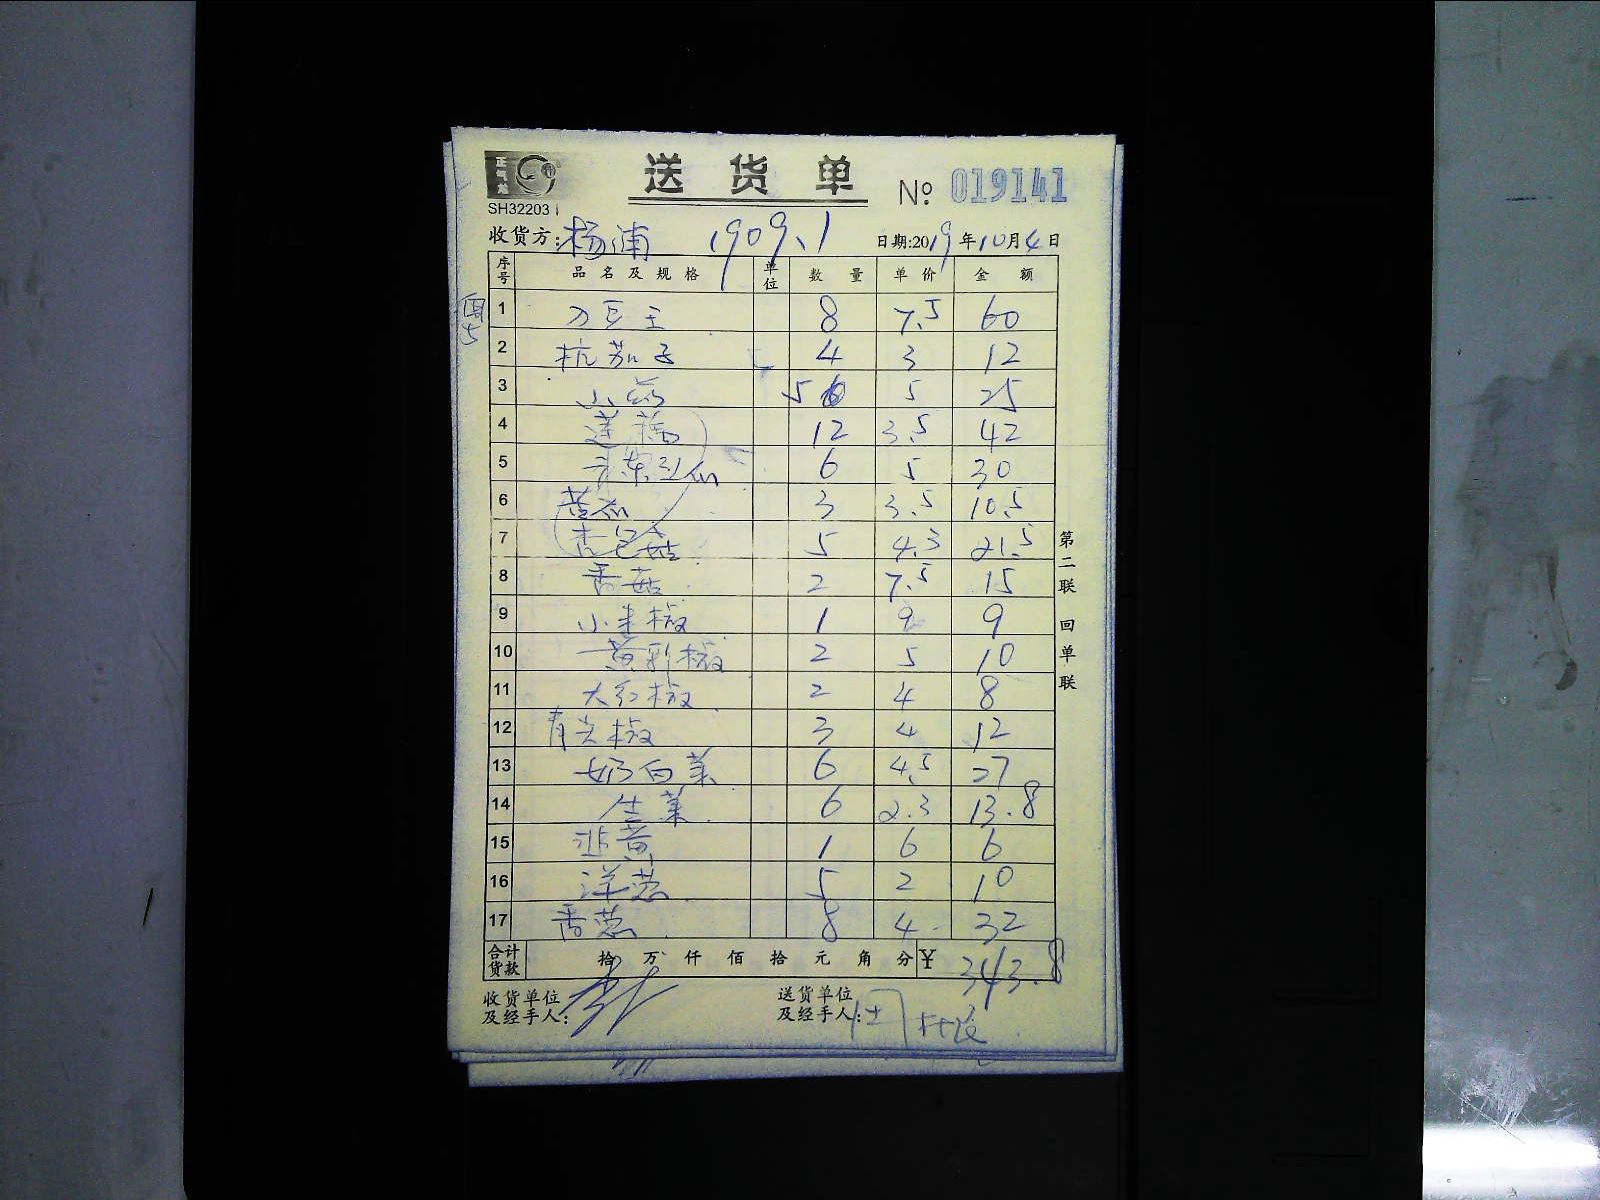 正气龙
送货单 № 019141
SH32203
收货方: 杨浦 1909.1 日期:2019年10月4日
序号 品名及规格 单位 数量 单价 金额
1 刀豆王 8 7.5 60
2 杭茄子 4 3 12
3 山药 5 5 25
4 莲藕 12 3.5 42
5 6 5 30
6 黄瓜 3 3.5 10.5
7 杏包菇 5 4.3 21.5
8 香菇 2 7.5 15
9 小米椒 1 9 9
10 黄彩椒 2 5 10
11 大红椒 2 4 8
12 青尖椒 3 4 12
13 奶白菜 6 4.5 27
14 生菜 6 2.3 13.8
15 韭黄 1 6 6
16 洋葱 5 2 10
17 香葱 8 4 32
合计货款 拾 万 仟 佰 拾 元 角 分 ¥ 343.8
收货单位及经手人: 送货单位及经手人:
第二联 回单联